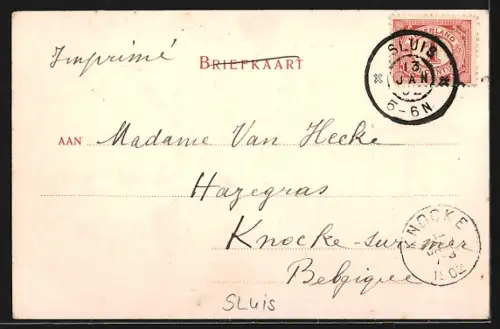 Imprimé
BRIEFKAART
NEDERLAND
SLUIS
13
JAN
02
5-6N
AAN Madame Van Hecke
Hazegras
Knocke-sur-mer
Belgique
KNOCKE
1902
Sluis